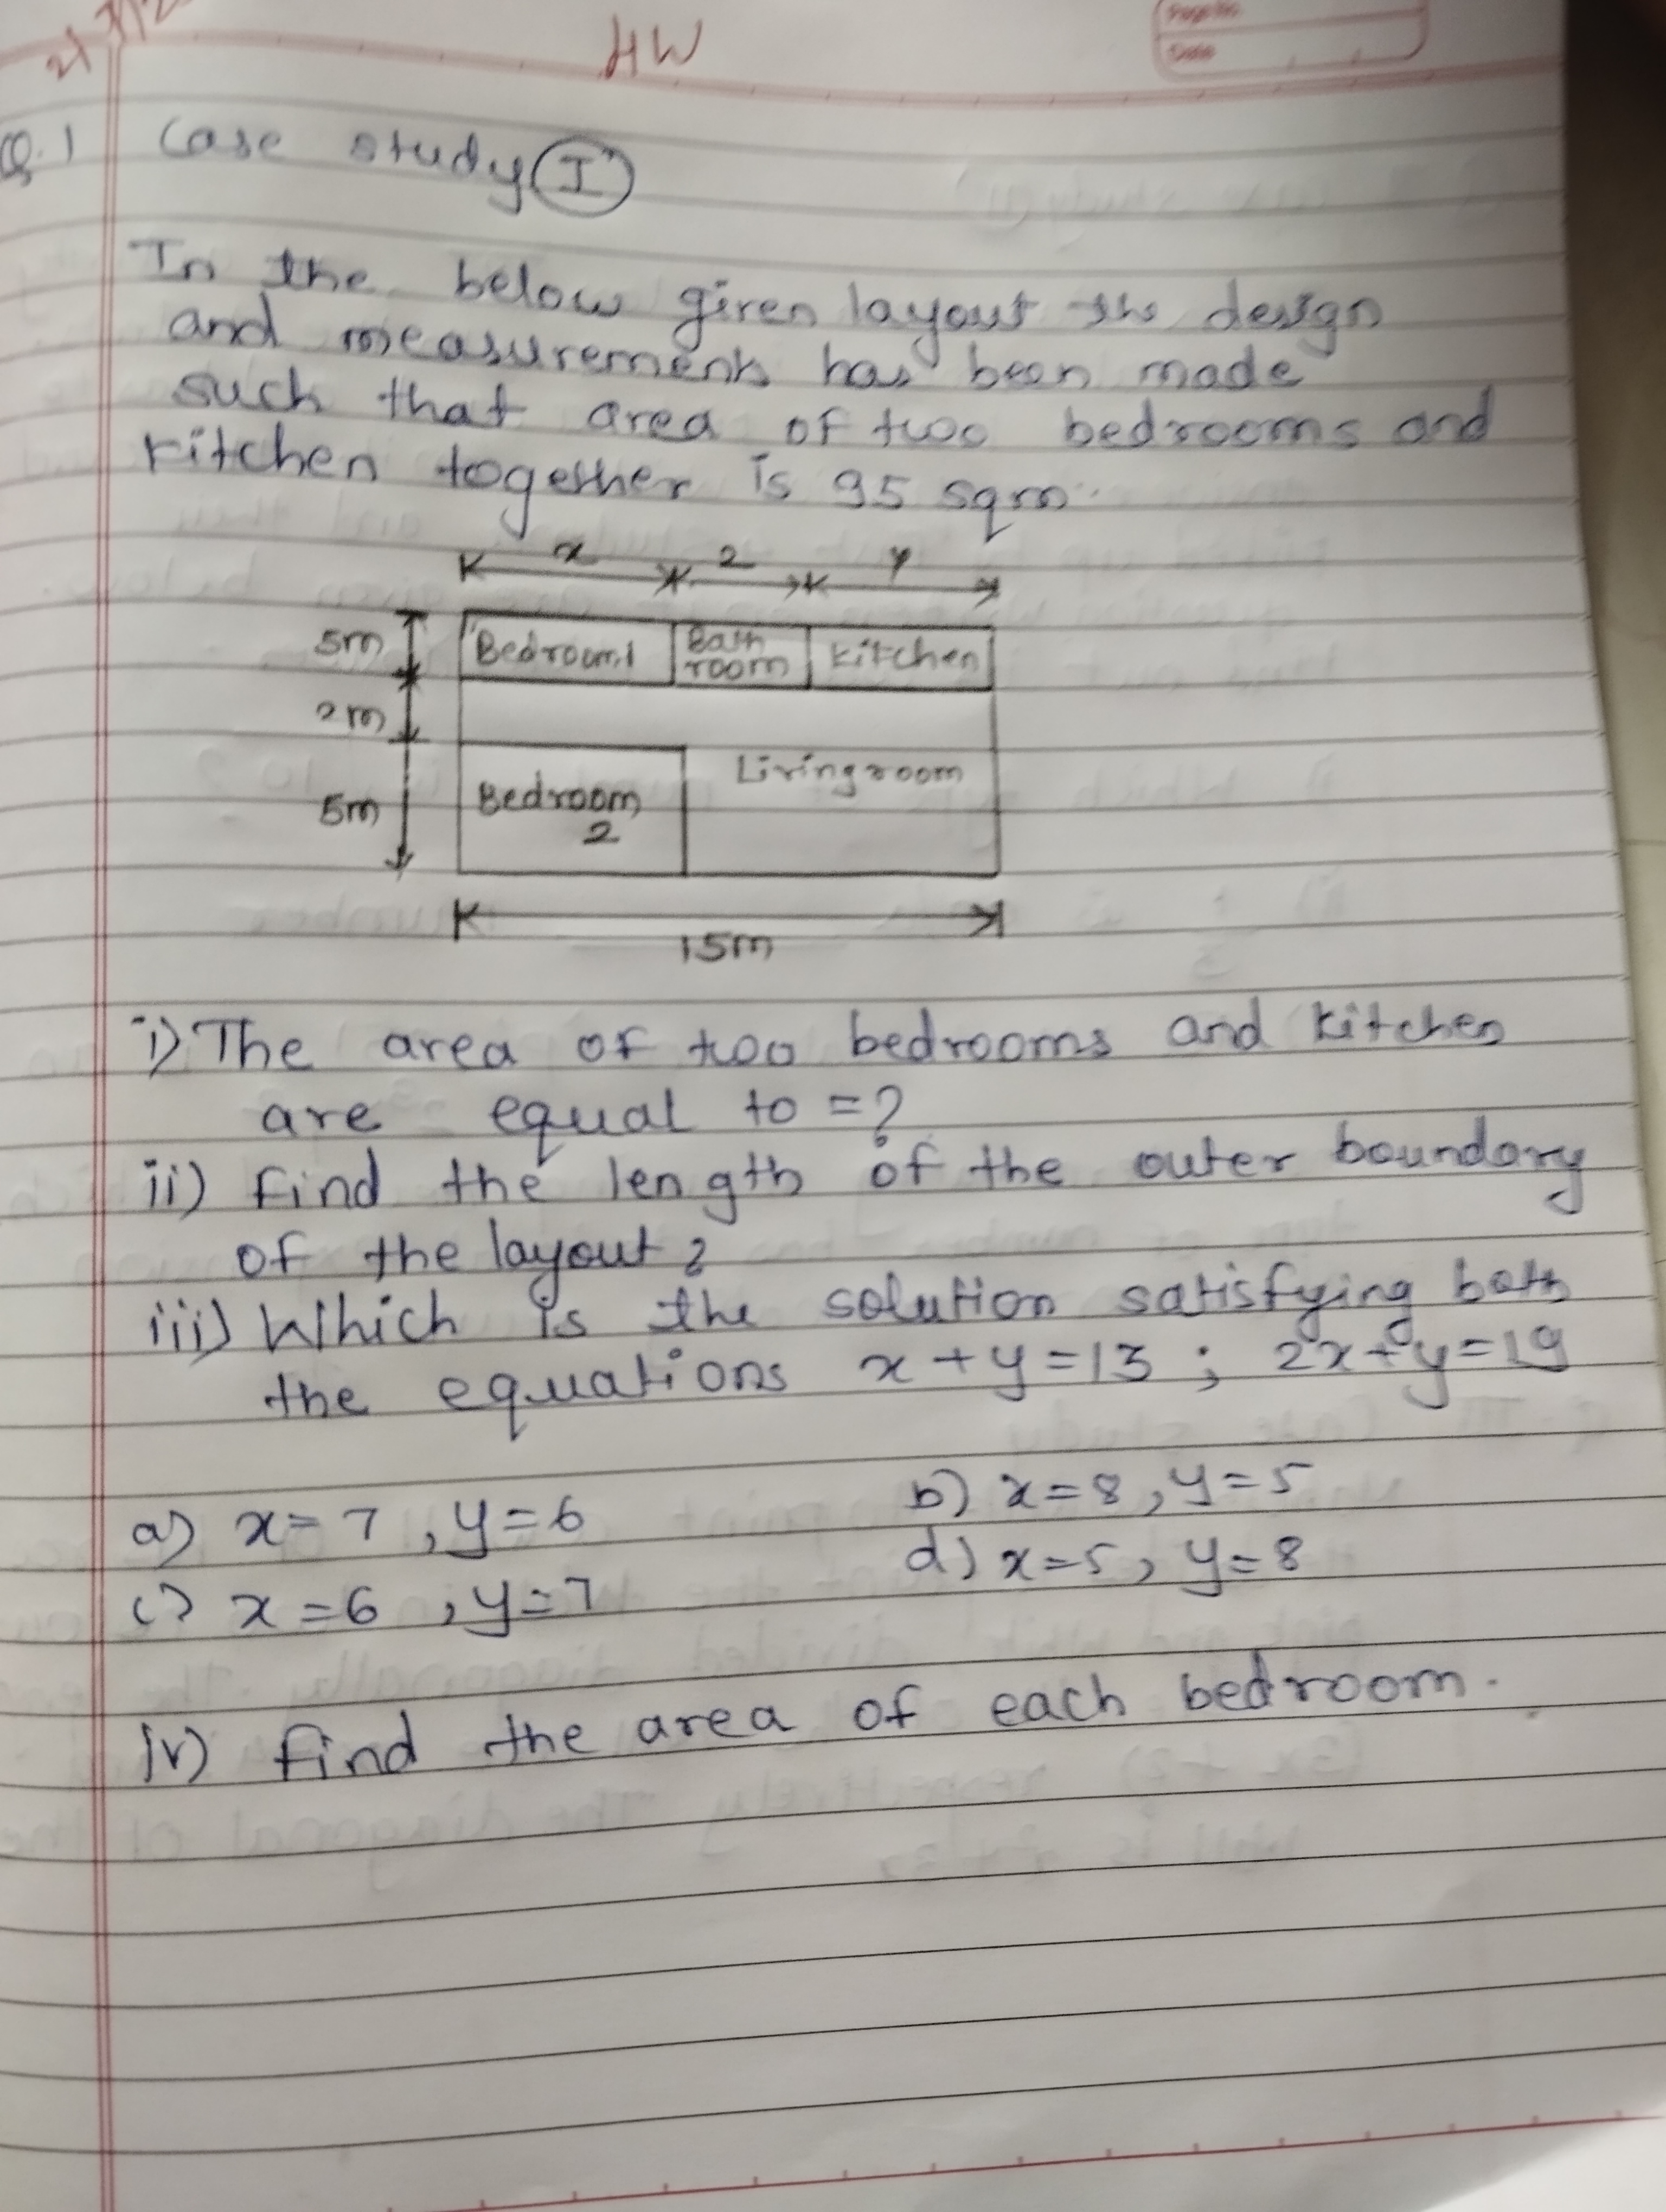 HW
Page No.
Date
Q.1 Case study (I)
In the below given layout the design
and measurements has been made
such that area of two bedrooms and
kitchen together is 95 sqm.
x 2 y
5m Bedroom1 Bath room kitchen
2m
Livingroom
5m Bedroom 2
15m
i) The area of two bedrooms and kitchen
are equal to = ?
ii) find the length of the outer boundary
of the layout ?
iii) Which is the solution satisfying both
the equations x + y = 13 ; 2x + y = 19
a) x = 7 , y = 6 b) x = 8 , y = 5
c) x = 6 , y = 7 d) x = 5 , y = 8
iv) find the area of each bedroom.